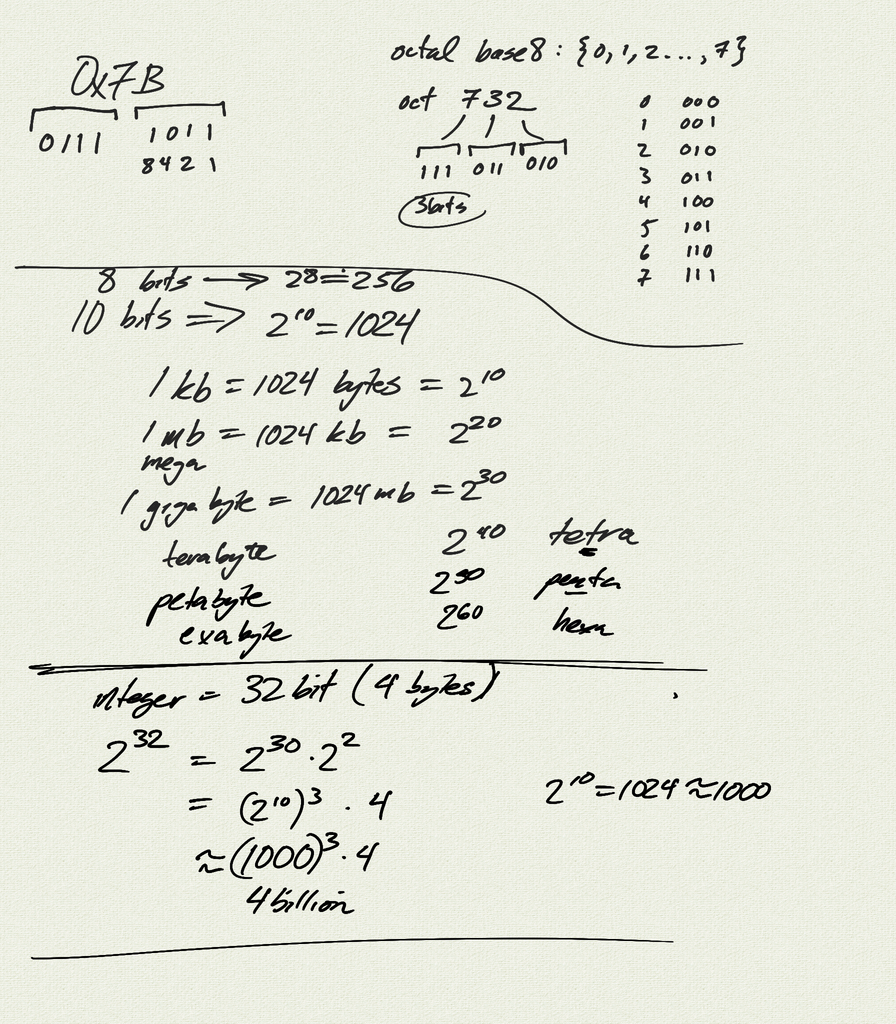 0x7B
0111 1011
8421
octal base8 : {0, 1, 2 ..., 7}
oct 732
111 011 010
3bits
0 000
1 001
2 010
3 011
4 100
5 101
6 110
7 111
8 bits → 2⁸ = 256
10 bits => 2¹⁰ = 1024
1 kb = 1024 bytes = 2¹⁰
1 mb = 1024 kb = 2²⁰
mega
1 giga byte = 1024 mb = 2³⁰
terabyte 2⁴⁰ tetra
petabyte 2⁵⁰ penta
exabyte 2⁶⁰ hexa
integer = 32 bit (4 bytes)
2³² = 2³⁰ · 2²
= (2¹⁰)³ · 4
≈ (1000)³ · 4
4 billion
2¹⁰ = 1024 ≈ 1000